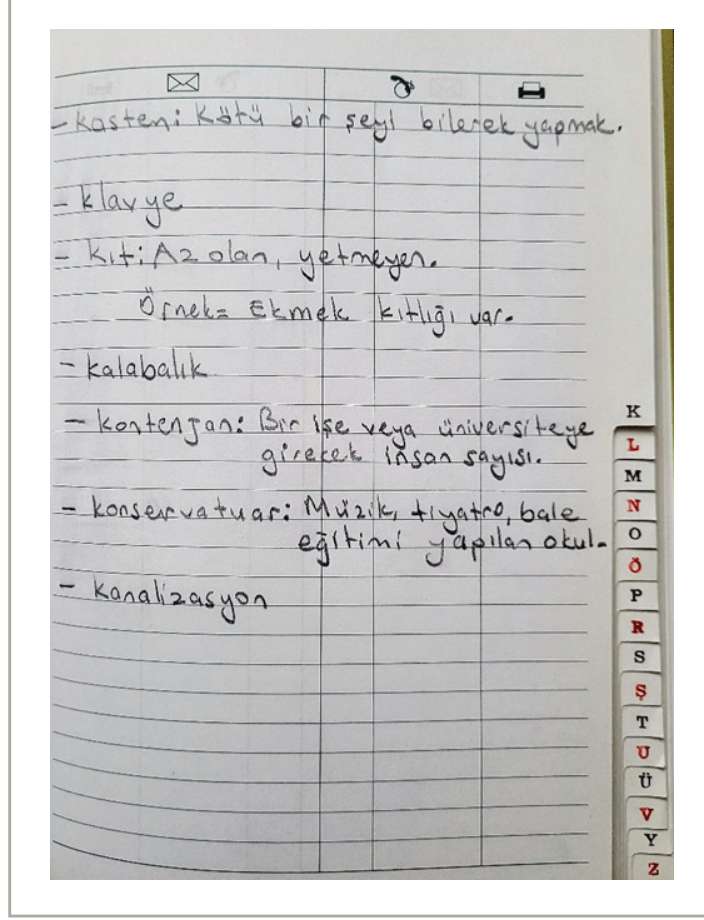 - Kasten: Kötü bir şeyi bilerek yapmak.
- klavye
- Kıt: Az olan, yetmeyen.
Örnek= Ekmek kıtlığı var.
- kalabalık
- kontenjan: Bir işe veya üniversiteye
girecek insan sayısı.
- konservatuar: Müzik, tiyatro, bale
eğitimi yapılan okul.
- kanalizasyon
K
L
M
N
O
Ö
P
R
S
Ş
T
U
Ü
V
Y
Z